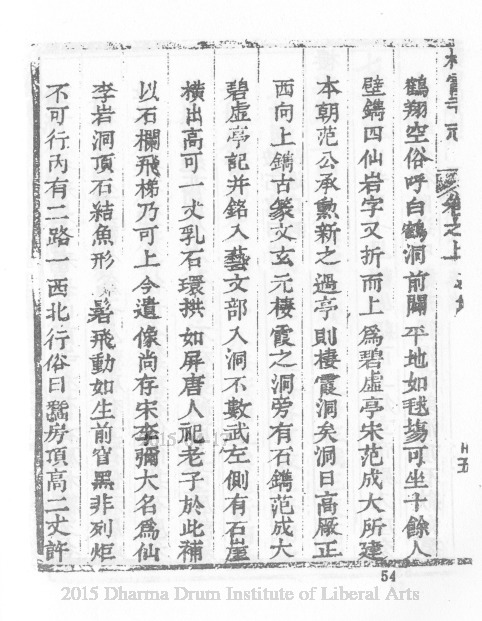 棲霞寺志
卷之上
鶴翔空俗呼白鶴洞前闢平地如毬場可坐十餘人
壁鐫四仙岩字又折而上為碧虛亭宋范成大所建
本朝范公承勳新之過亭則棲霞洞矣洞日高厰正
西向上鐫古篆文玄元棲霞之洞旁有石鐫范成大
碧虛亭記并銘入藝文部入洞不數武左側有石崖
橫出高可一丈乳石環拱如屏唐人祀老子於此補
以石欄飛梯乃可上今遺像尚存宋李彌大名為仙
李岩洞頂石結魚形 鬐飛動如生前窅黑非列炬
不可行內有二路一西北行俗曰蠶房頂高二丈許
54
2015 Dharma Drum Institute of Liberal Arts